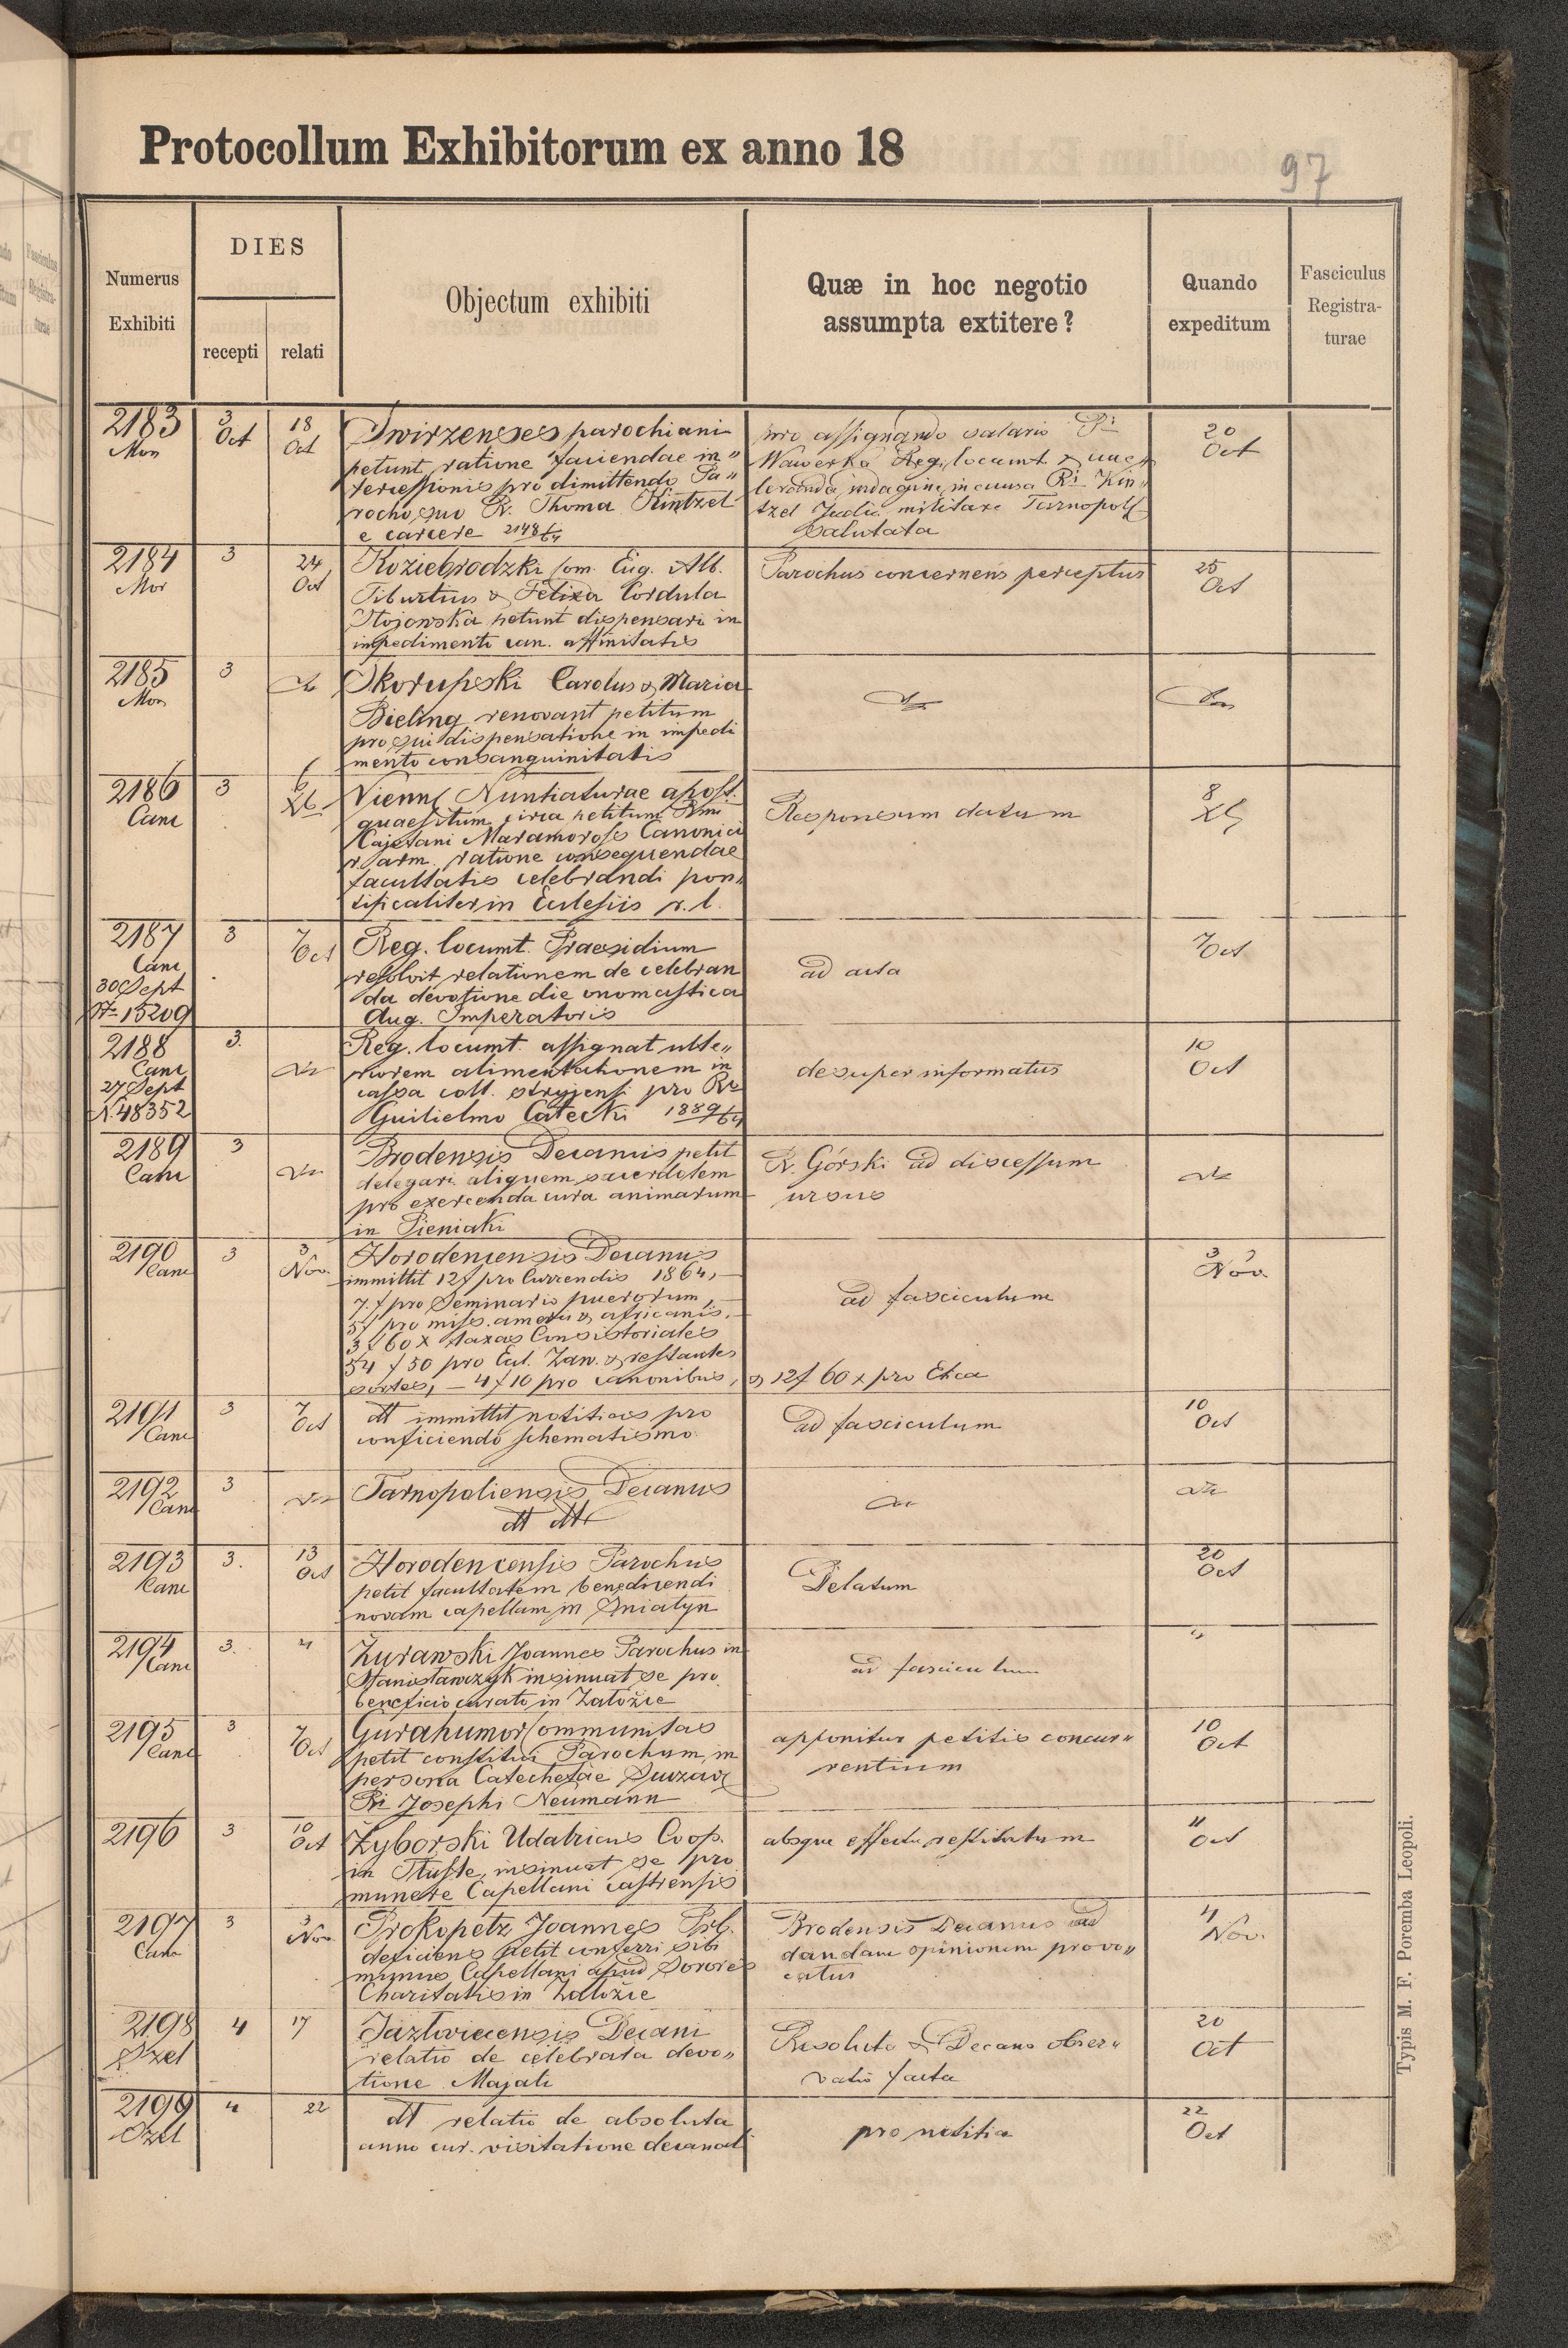 Protocollum Exhibitorum ex anno 18
97
Numerus Exhibiti
DIES
recepti
relati
Objectum exhibiti
Quæ in hoc negotio assumpta extitere?
Quando expeditum
Fasciculus Registra-turae
2183
Mon
3 Oct
18 Oct
Swirzenses parochiani
petunt ratione faciendae in„
tercessionis pro dimittendo Pa„
rocho suo R. Thoma Kintzel
e carcere 2148/64
pro assignando salario Ri
Wawerka Reg. locumt. &
leranda indagine in causa Ri Kin„
tzel Judic. militare Tarnopoli
salutata
20 Oct
2184
Mon
3
24 Oct
Koziebrodzki Com. Eug. Alb.
Tiburtius & Felixa Cordula
Stojowska petunt dispensari in
impedimento can. affinitatis
Parochus concernens perceptus
25 Oct
2185
Mon
3
Skorupski Carolus & Maria
Bieling renovant petitum
pro sui dispensatione in impedi
mento consanguinitatis
2186
Canc
3
6 Xb
Vienn. Nuntiaturae apost.
quaesitum circa petitum Rmi
Cajetani Maramorosz Canonici
r. arm. ratione consequendae
facultatis celebrandi pon„
tificaliter in Eclesiis r. l.
Responsum datum
8 Xb
2187
Canc
30 Sept
N. 15209
3
7 Oct
Reg. locumt. Praesidium
resolvit relationem de celebran
da devotione die onomastica
Aug. Imperatoris
ad acta
7 Oct
2188
Canc
27 Sept
N. 48352
3.
Reg. locumt. assignat ulte„
riorem alimentationem in
cassa coll. stryjensi pro Ro
Guilielmo Catecki 1889/64
desuper informatus
10 Oct
2189
Canc
3
Brodensis Decanus petit
delegari aliquem sacerdotem
pro exercenda cura animarum
in Pieniaki
R. Górski ad discessum
ursus
2190
Canc
3
3 Nov.
Horodencensis Decanus
immittit 12 f pro Currendis 1864,
7. f pro Seminario puerorum,
5 f pro miss. amer. & africanis,
3 f 60 x taxas Consistoriales
54 f 50 pro Eul. Zaw. & restantes
sortes, — 4 f 10 pro canonibus, & 12 f 60 x pro Etca
ad fasciculum
3 Nov.
2191
Canc
3
7 Oct
dt immittit notitias pro
conficiendo schematismo
ad fasciculum
10 Oct
2192
Canc
3
Tarnopoliensis Decanus
dt dtto
2193
Canc
3.
13 Oct
Horodencensis Parochus
petit facultatem benedicendi
novam capellam in Sniatyn
Delatum
20 Oct
2194
Canc
3.
"
Żurawski Joannes Parochus in
Stanisławczyk insinuat se pro
beneficio curato in Załoźce
ad fasciculum
"
2195
Canc
3
7 Oct
Gurahumor Communitas
petit constitui Parochum in
persona Catechetae Suczav.
Ri Josephi Neumann
apponitur petitis concur„
rentium
10 Oct
2196
3
10 Oct
Żyborski Udalricus Coop.
in Tłuste, insinuat se pro
munere Capellani castrensis
absque effectu restitutum
11 Oct
2197
Canc
3
3 Nov.
Prokopetz Joannes Prb.
deficiens petit conferri sibi
munus Capellani apud Sorores
Charitatis in Załoźce
Brodensis Decanus ad
dandam opinionem provo„
catus
4 Nov.
2198
Ozel
4
17
Jazłoviecensis Decani
relatio de celebrata devo„
tione Majali
Resoluto & Decano obser„
vatio facta
20 Oct
2199
Ozel
4
22
dt relatio de absoluta
anno cur. visitatione decanali
pro notitia
22 Oct
Typis M. F. Poremba Leopoli.